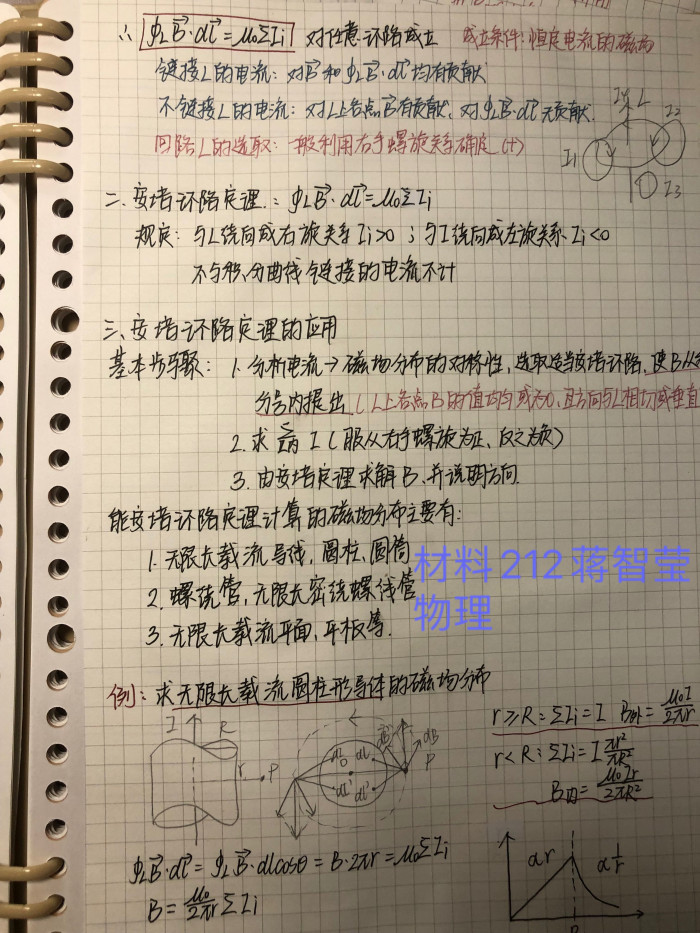 ∴ ∮L B⃗·dl⃗ = μ₀ΣIi 对任意环路成立 成立条件:恒定电流的磁场
链接L的电流: 对B⃗和∮L B⃗·dl⃗均有贡献
不链接L的电流: 对L上各点B⃗有贡献, 对∮L B⃗·dl⃗无贡献.
回路L的选取: 一般利用右手螺旋关系确定(+)
I4 L I2
I1 I3
二. 安培环路定理: ∮L B⃗·dl⃗ = μ₀ΣIi
规定: 与L绕向成右旋关系 Ii>0 ; 与I绕向成左旋关系 Ii<0
不与积分曲线链接的电流不计
三、安培环路定理的应用
基本步骤: 1. 分析电流→磁场分布的对称性, 选取适当安培环路, 使B从
分号内提出 (L上各点B的值均匀或为0, 且方向与L相切或垂直
2. 求 Σ内 I (服从右手螺旋为正、反之为负)
3. 由安培定理求解B、并说明方向.
能安培环路定理计算的磁场分布主要有:
1. 无限长载流导线, 圆柱、圆筒
2. 螺绕管, 无限长密绕螺线管
3. 无限长载流平面, 平板等.
材料 212 蒋智莹
物理
例: 求无限长载流圆柱形导体的磁场分布
r≥R: ΣIi = I B外 = μ₀I/2πr
r<R: ΣIi = I πr²/πR²
B内 = μ₀Ir/2πR²
I R r P
dl dl dl' dl' O B⃗ dB P
∮L B⃗·dl⃗ = ∮L B⃗·dlcosθ = B·2πr = μ₀ΣIi
B = μ₀/2πr ΣIi
αr α1/r
R